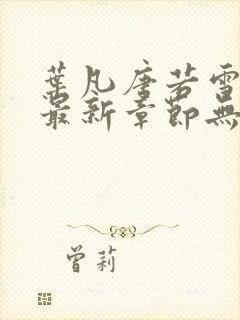 葉凡唐若雪
最新章節無
曾莉